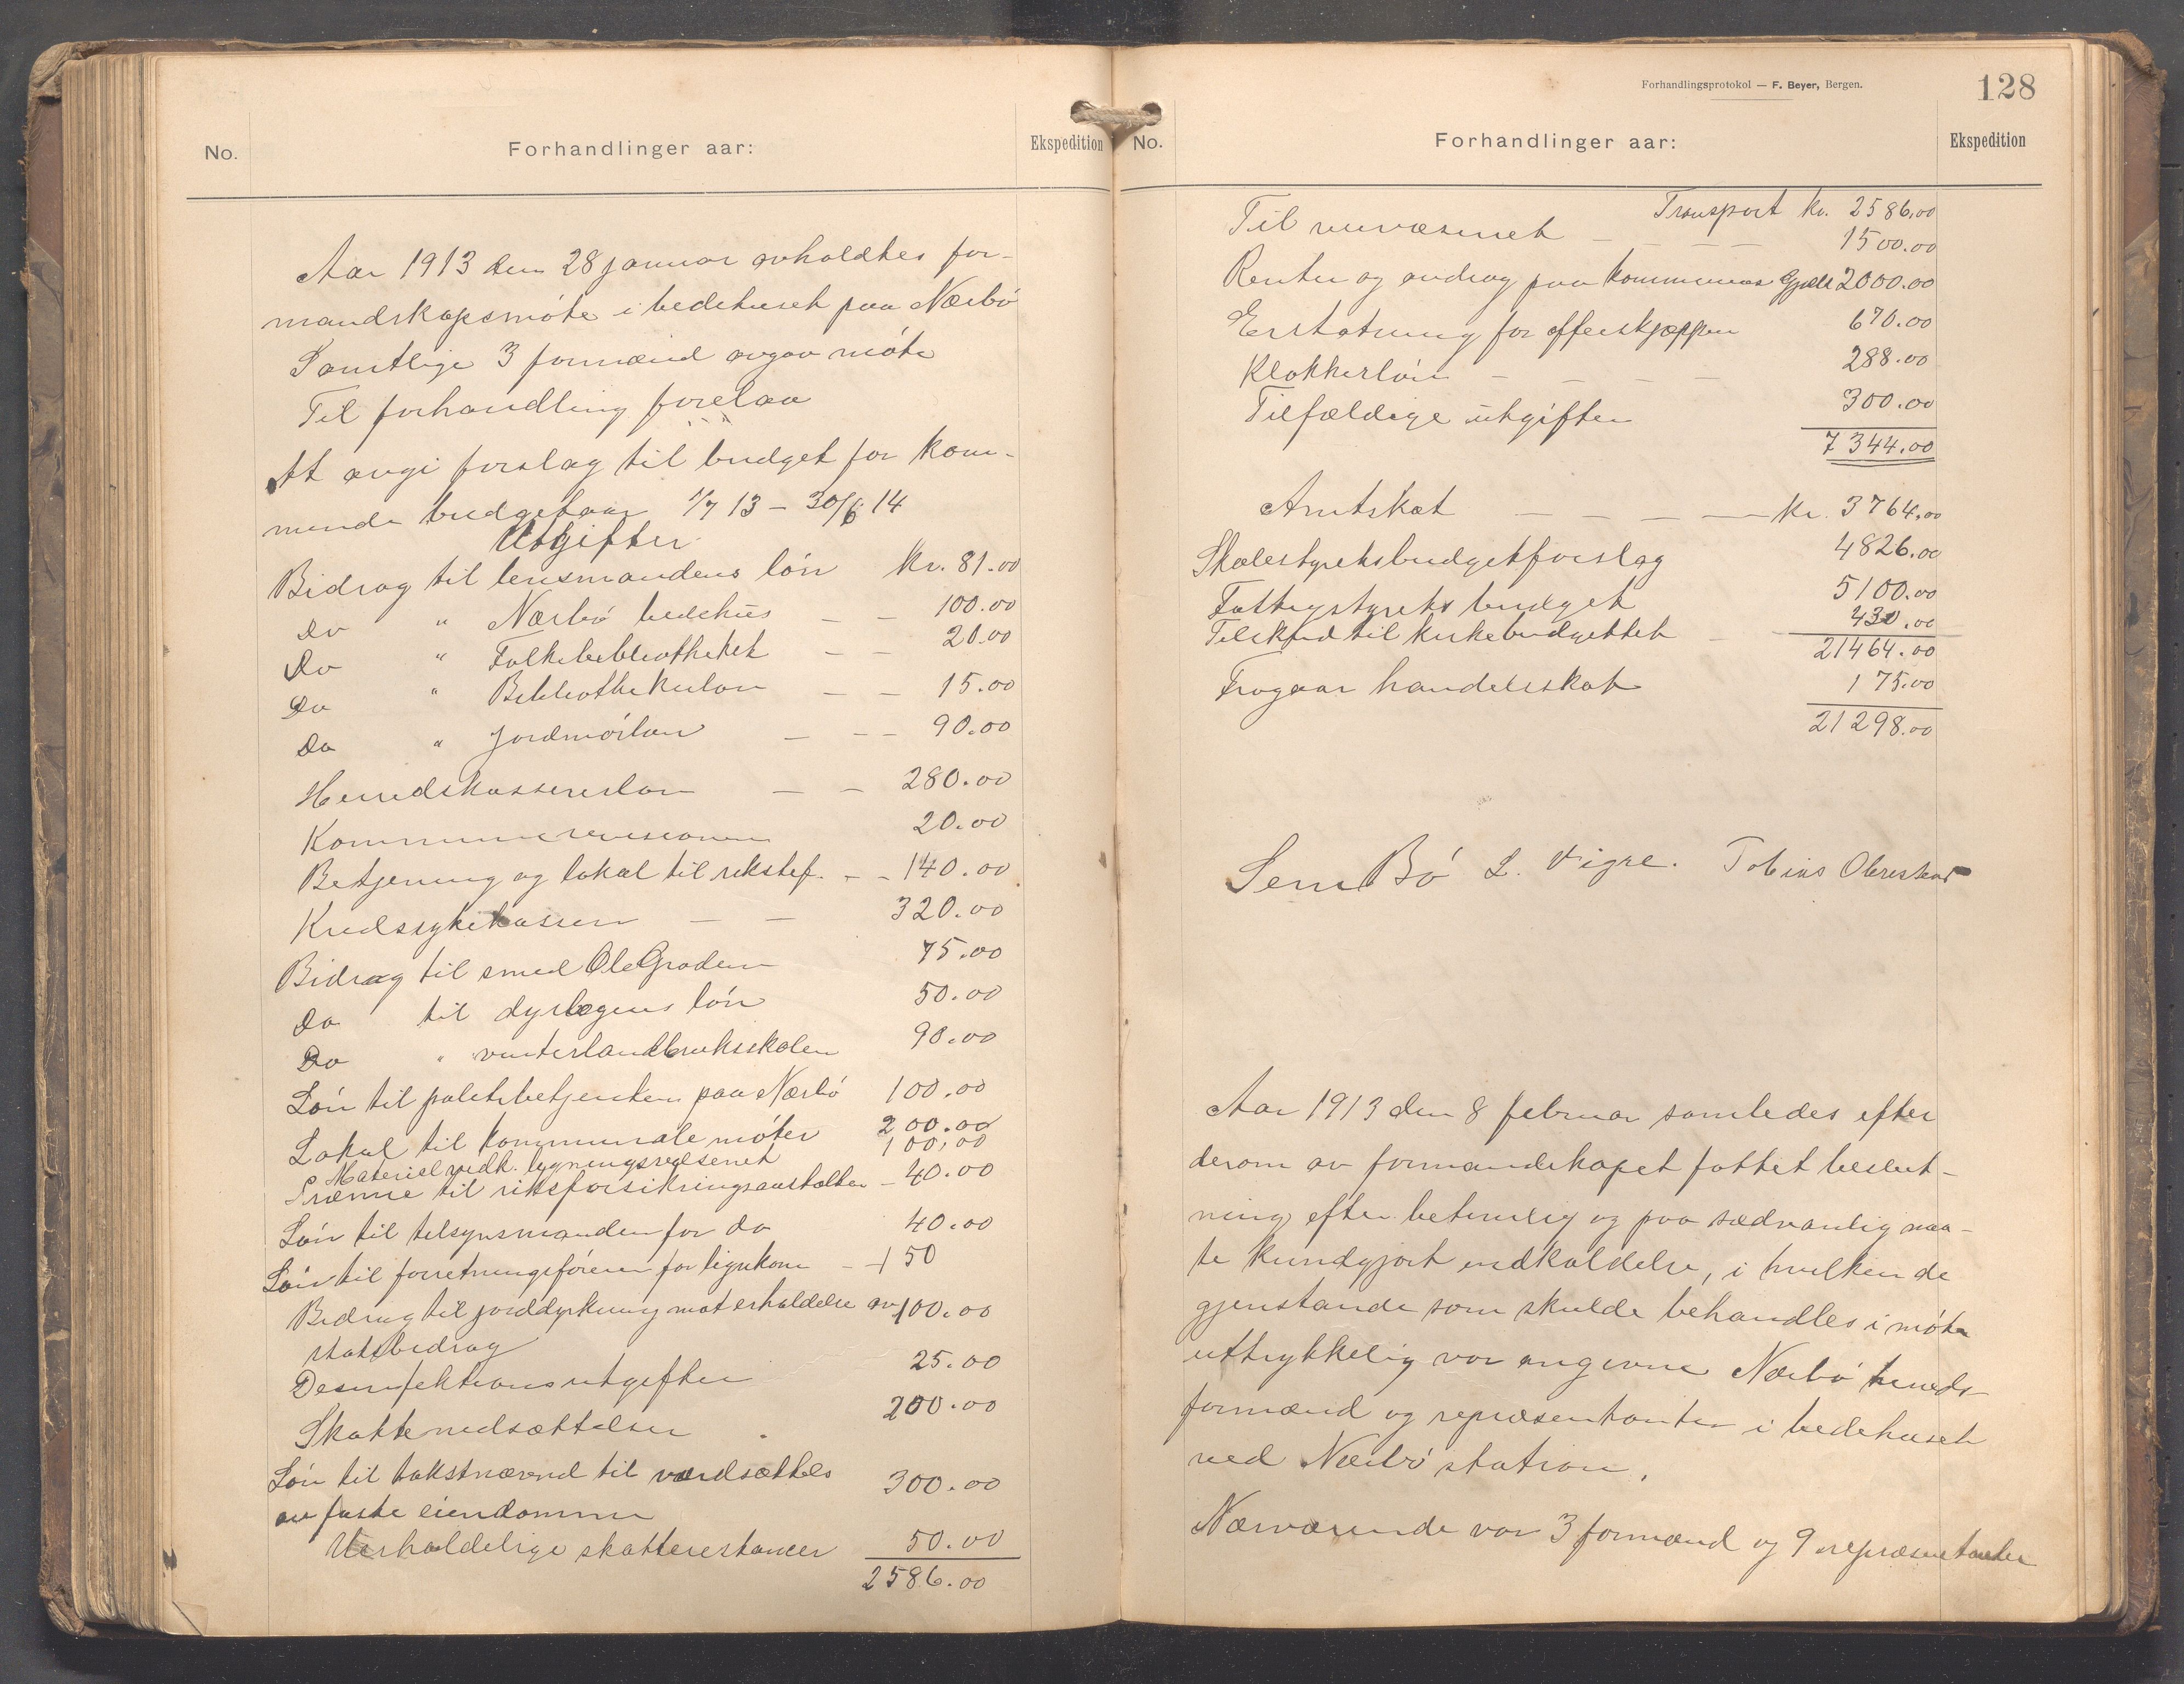 No.
Forhandlinger aar:
Ekspedition
Aar 1913 den 28 januar avholdtes for-
mandskapsmöte i bedehuset paa Nærbö
Samtlige 3 formænd avgav möte
Til forhandling forelaa
At avgi forslag til budget for kom-
mende budgetaar 1/7 13 - 30/6 14
Utgifter
Bidrag til lensmandens lön kr. 81.00
Do " Nærbö bedehus - - 100.00
Do " Folkebibliotheket - - 20.00
Do " Bibliothekerløn - - 15.00
Do " Jordmörløn - - - 90.00
Herredskassererløn - - 280.00
Kommunerevisionen 20.00
Betjening og lokal til rikstef. - - 140.00
Kredssykekassen - - 320.00
Bidrag til smed Ole Graden 75.00
Do til dyrlægens lön 50.00
Do " vinterlandbruksskolen 90.00
Lön til politibetjenten paa Nærbö 100.00
Lokal til kommunale möter 200.00
Materiel vedk. lygningsvæsenet 100,00
Præmie til riksforsikringsanstalten - 40.00
Lön til tilsynsmanden for do 40.00
Lön til forretningsföreren for lignkom - 150
Bidrag til jorddyrkning mot erholdelse av 100.00
statsbidrag
Desinfektionsutgifter 25.00
Skattenedsættelser 200.00
Lön til takstmænd til værdsættels
av faste eiendomme 300.00
Uerholdelige skatterestancer 50.00
2586.00
Forhandlingsprotokol — F. Beyer, Bergen.
128
No.
Forhandlinger aar:
Ekspedition
Transport kr. 2586,00
Til veivæsenet - - - 1500.00
Renter og avdrag paa kommunens Gjæld 2000.00
Erstatning for offerskjæppen 670.00
Klokkerlön - - - - 288.00
Tilfældige utgifter 300.00
7344.00
Amtskat - - - - kr. 3764,00
Skolestyretsbudgetforslag 4826.00
Fattigstyrets budget 5100.00
Tilskud til kirkebudgettet - 430.00
21464.00
Fragaar handelsskat 175.00
21298.00
Sem Bö L. Vigre. Tobias Obrestad
Aar 1913 den 8 februar samledes efter
derom av formandskapet fattet beslut-
ning efter betimelig og paa sædvanlig maa-
te kundgjort indkaldelse, i hvilken de
gjenstande som skulde behandles i möte
uttrykkelig var angivne Nærbö herreds
formænd og repræsentanter i bedehuset
ved Nærbö station.
Nærværende var 3 formænd og 9 repræsentanter